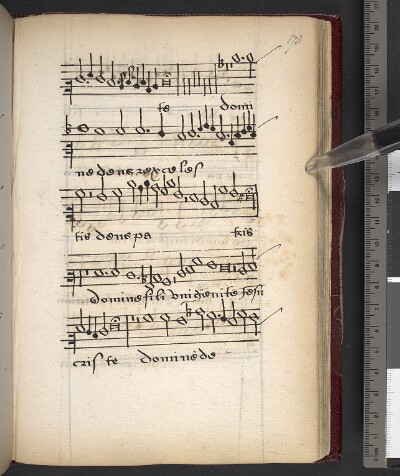 173
te domi
ne deus rex celes
tis deus pa tris
domine fili unigenite Jesu
criste domine de